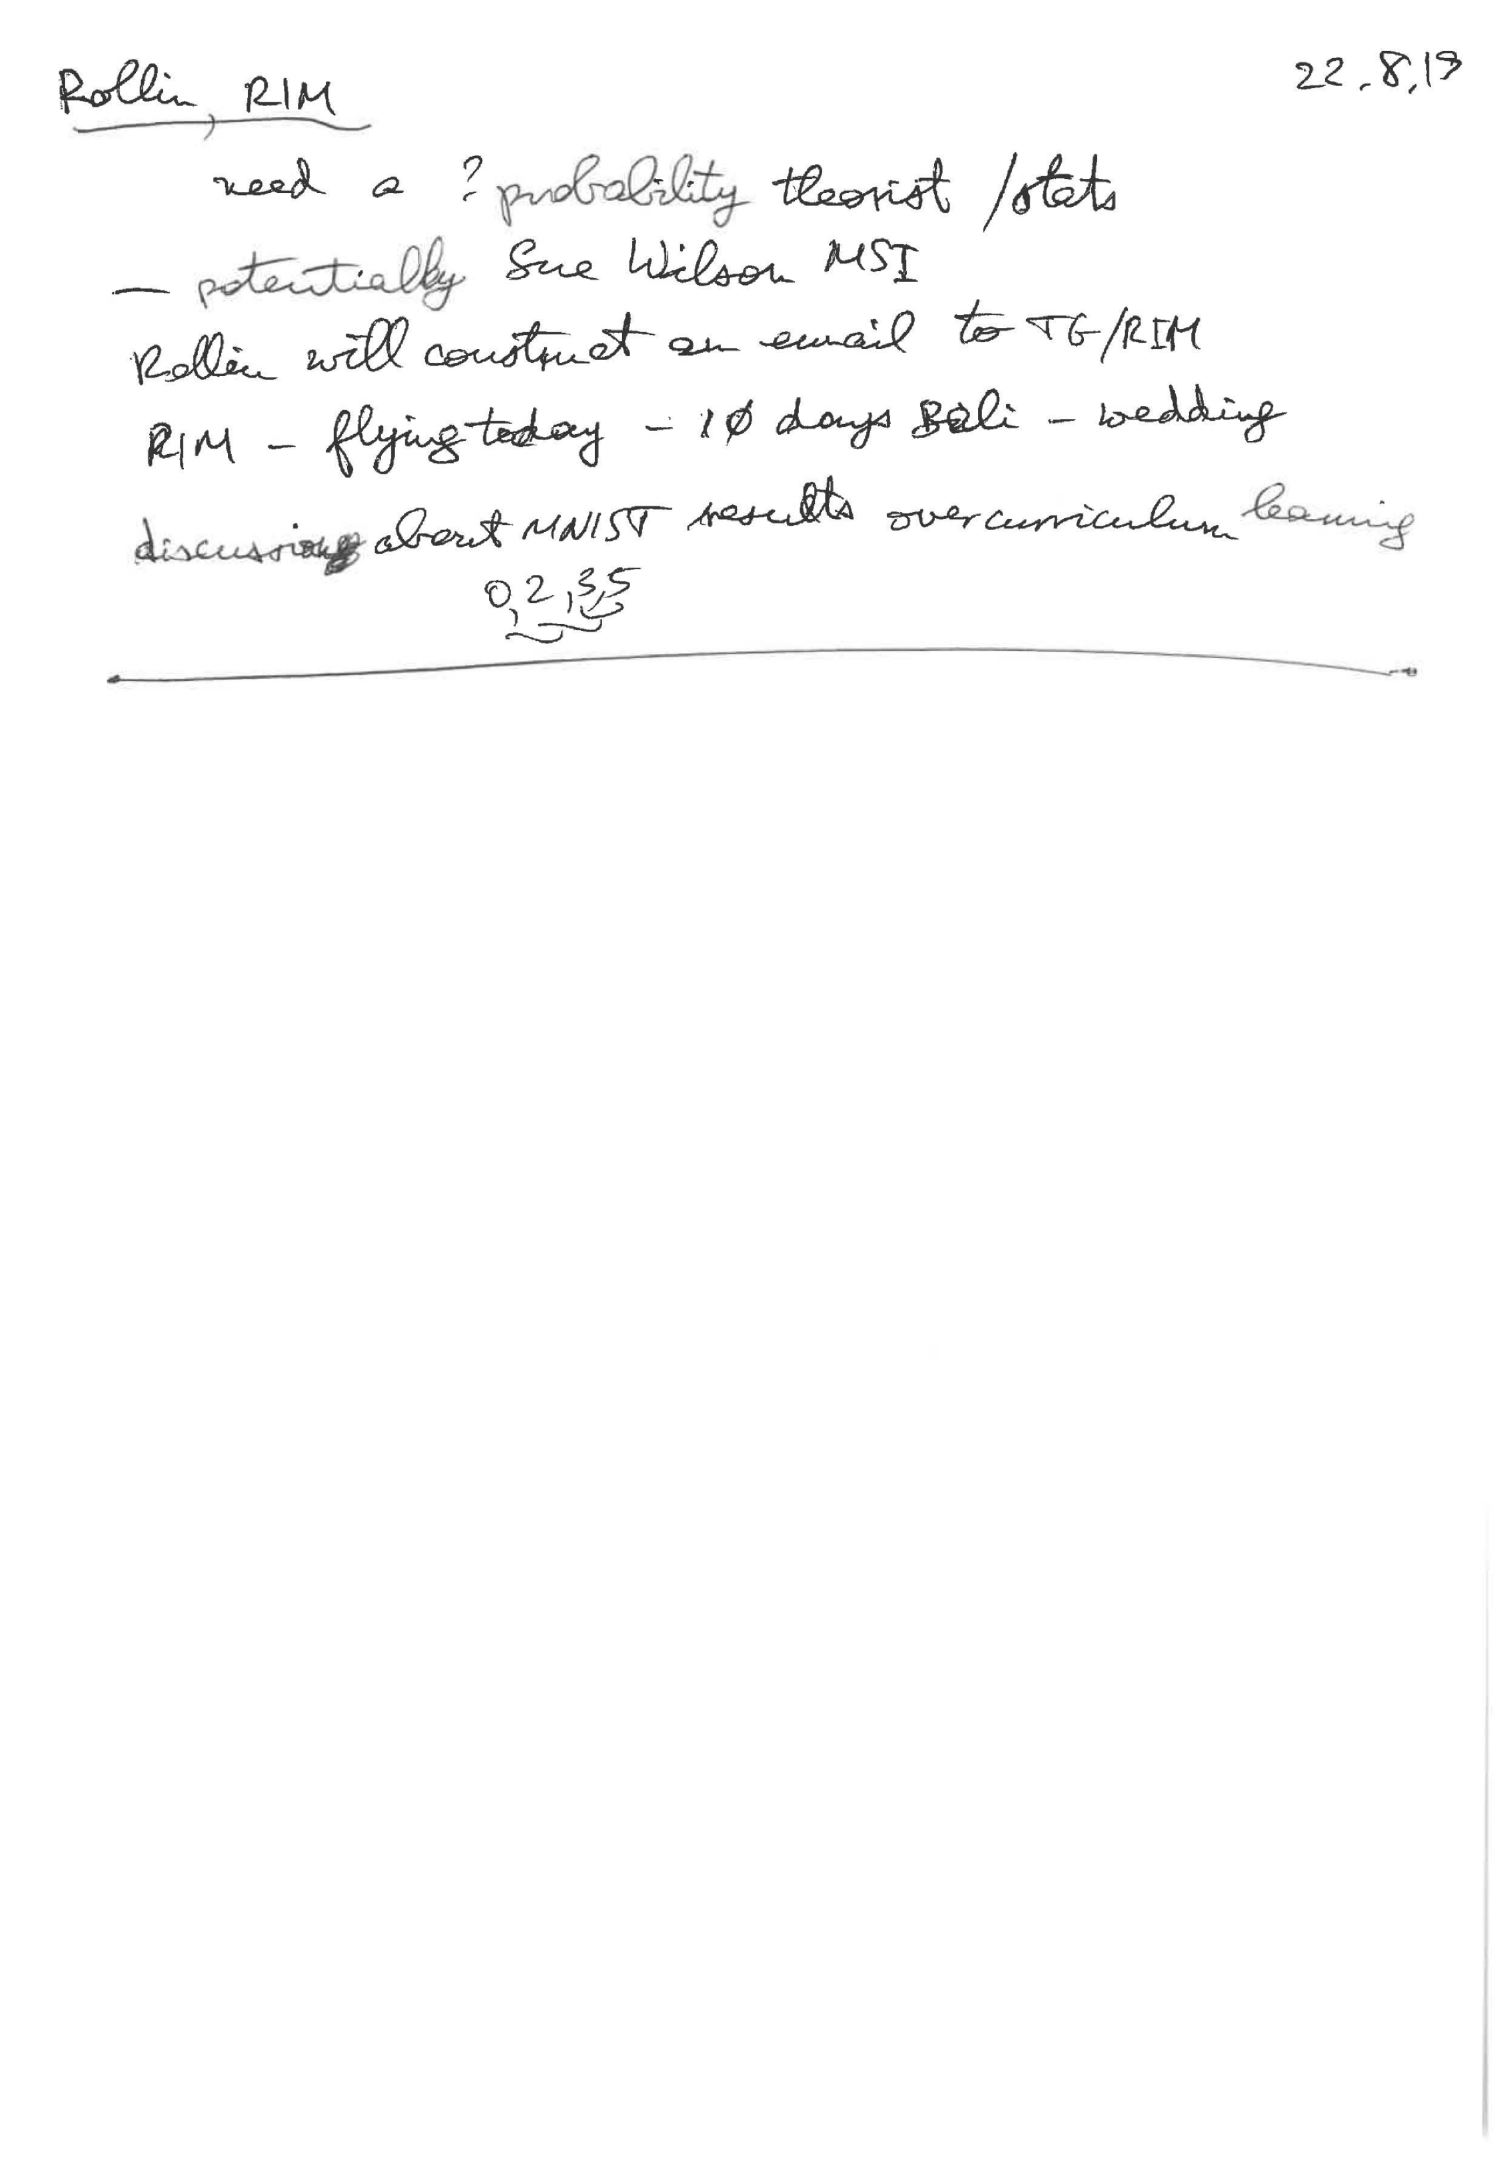 Rollin, RIM 22.8.19
need a ? probability theorist / stats
— potentially Sue Wilson MSI
Rollin will construct an email to TG/RIM
RIM – flying today – 10 days Bali – wedding
discussion about MNIST results over curriculum learning
0, 2, 3, 5